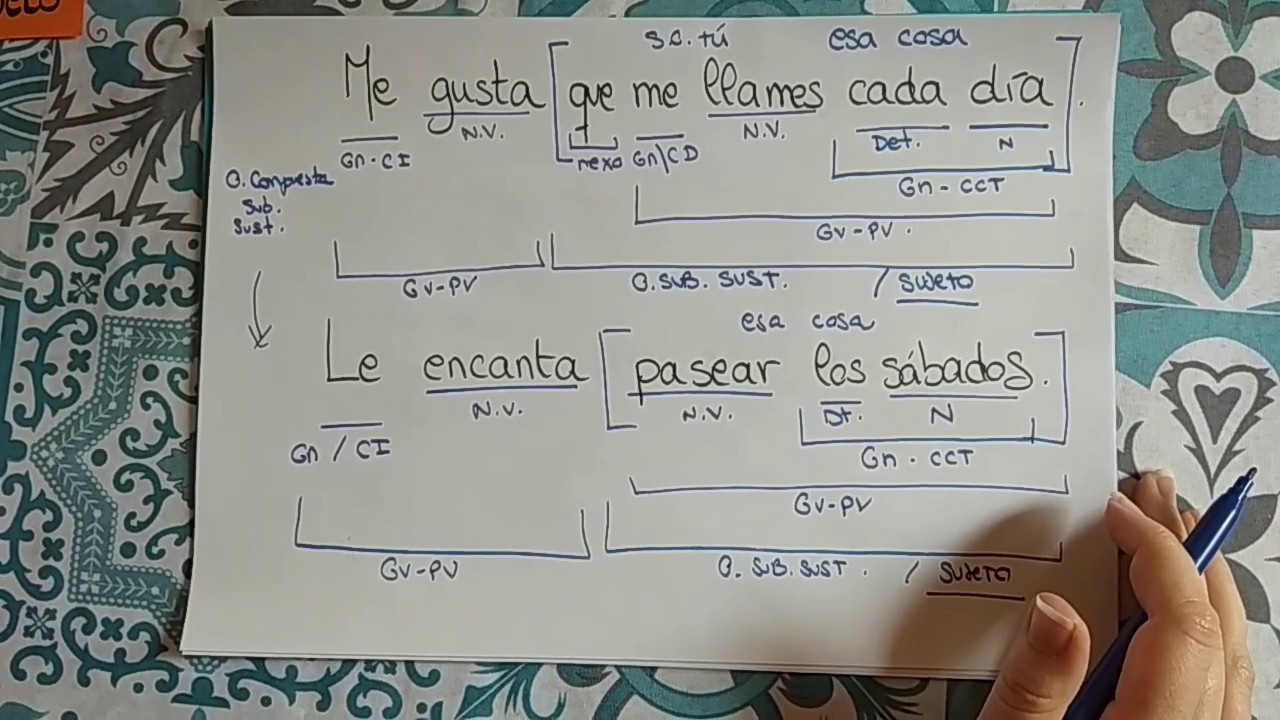 s.o. tú esa cosa
Me gusta [que me llames cada día].
N.V. N.V. Det. N
Gn · CI nexo Gn/CD
Gn - CCT
O. Compuesta
Sub.
Sust.
GV - PV .
GV - PV O. SUB. SUST. / SUJETO
esa cosa
Le encanta [pasear los sábados.]
N.V. N.V. Dt. N
Gn / CI Gn . CCT
GV - PV
GV - PV O. SUB. SUST . / SUJETO